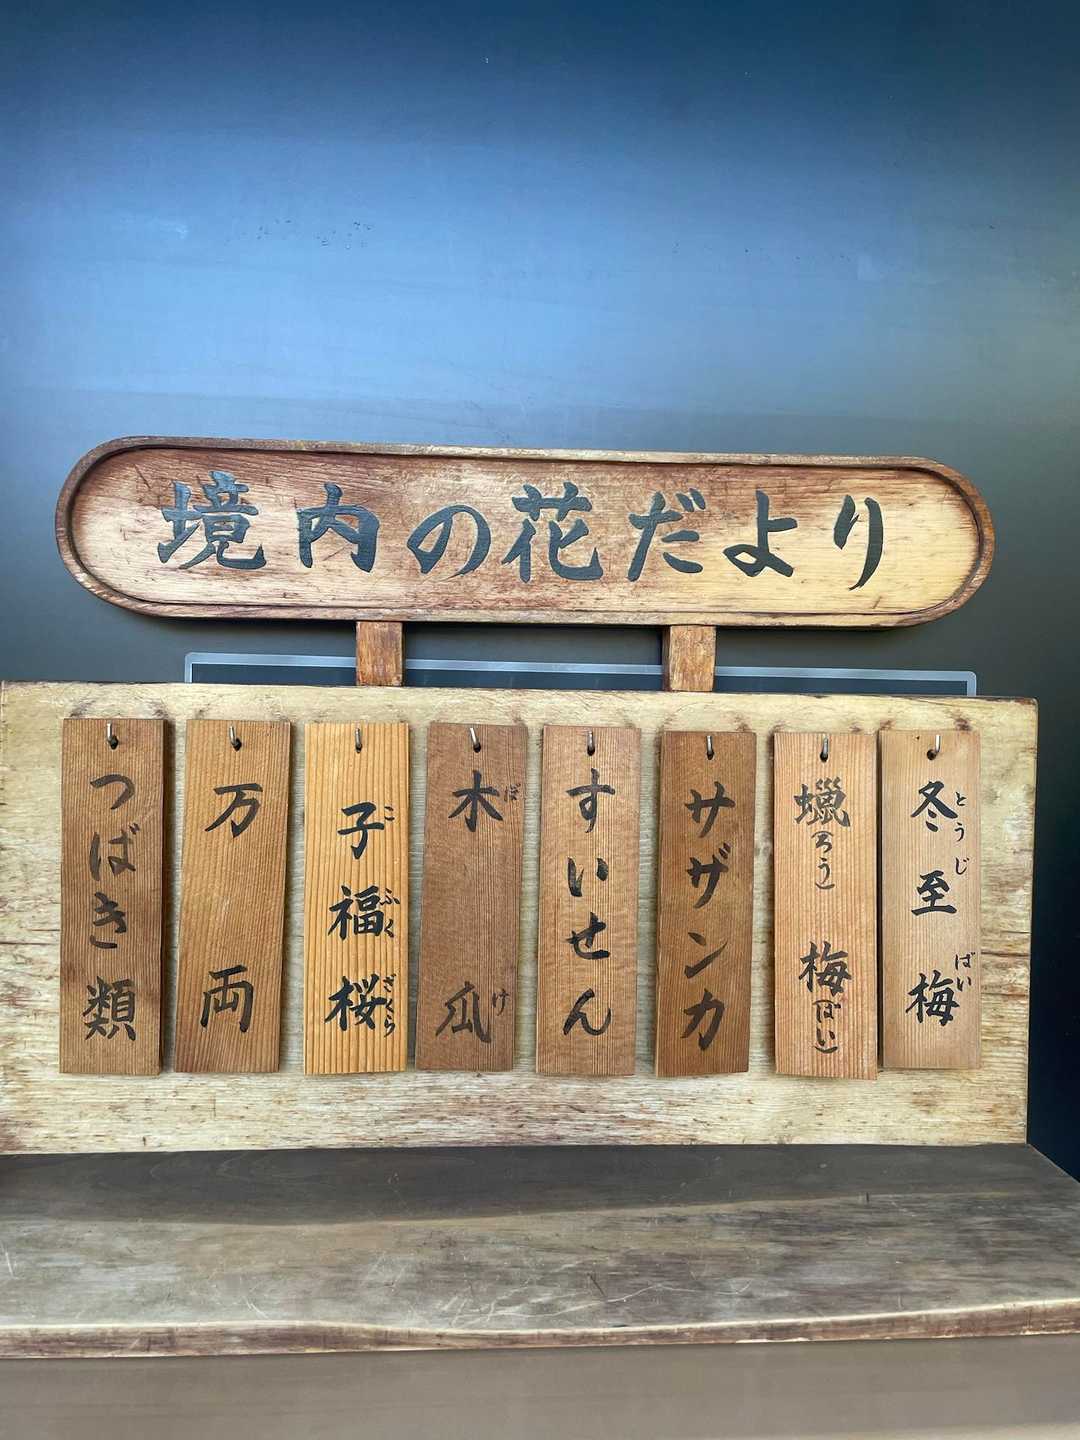 境内の花だより
冬至梅
とうじ
ばい
蠟梅
(ろう)
(ばい)
サザンカ
すいせん
木瓜
ぼ
け
子福桜
こ
ふく
ざくら
万両
つばき類